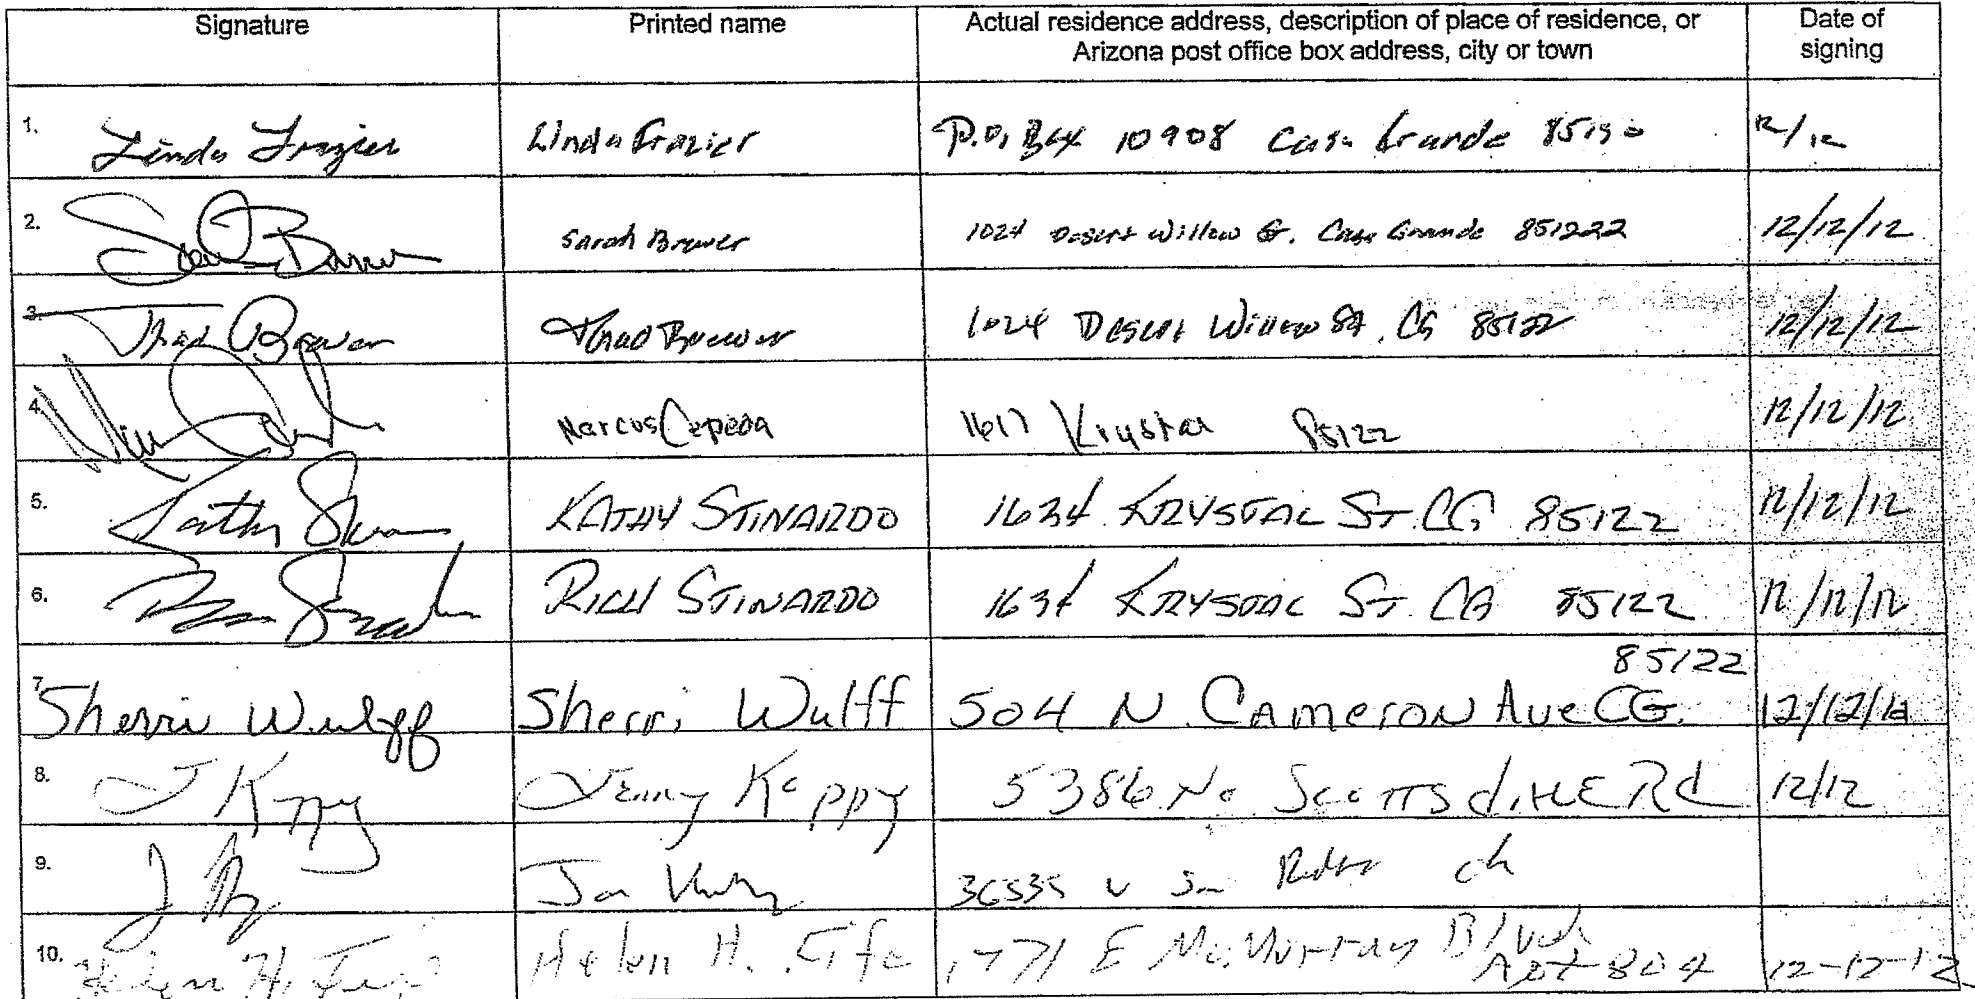 Signature Printed name Actual residence address, description of place of residence, or Arizona post office box address, city or town Date of signing
1. Linda Frazier Linda Frazier P.O. Box 10908 Casa Grande 85130 12/12
2. Sarah Brewer 1024 Desert Willow St. Casa Grande 851222 12/12/12
3. Thad Brewer Thad Brewer 1024 Desert Willow St. CG 85122 12/12/12
4. Marcus Cepeda 1617 Krystal 85122 12/12/12
5. Kathy KATHY STINARDO 1634 KRYSTAL ST. CG 85122 12/12/12
6. RICH STINARDO 1634 KRYSTAL ST. CG 85122 12/12/12
7. Sherri Wulff Sherri Wulff 504 N. CAMERON Ave CG. 85122 12/12/12
8. J Kappy Jenny Kappy 5386 No SCOTTSdALE Rd 12/12
9. J Jon 36535 W
10. Helen H. Fife Helen H. Fife 1771 E McMurray Blvd Apt 804 12-12-12